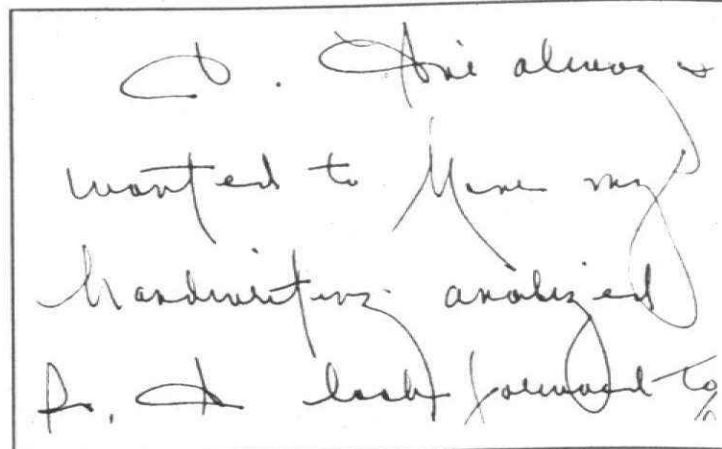 I've always
wanted to have my
handwriting analized
so. I look forward to